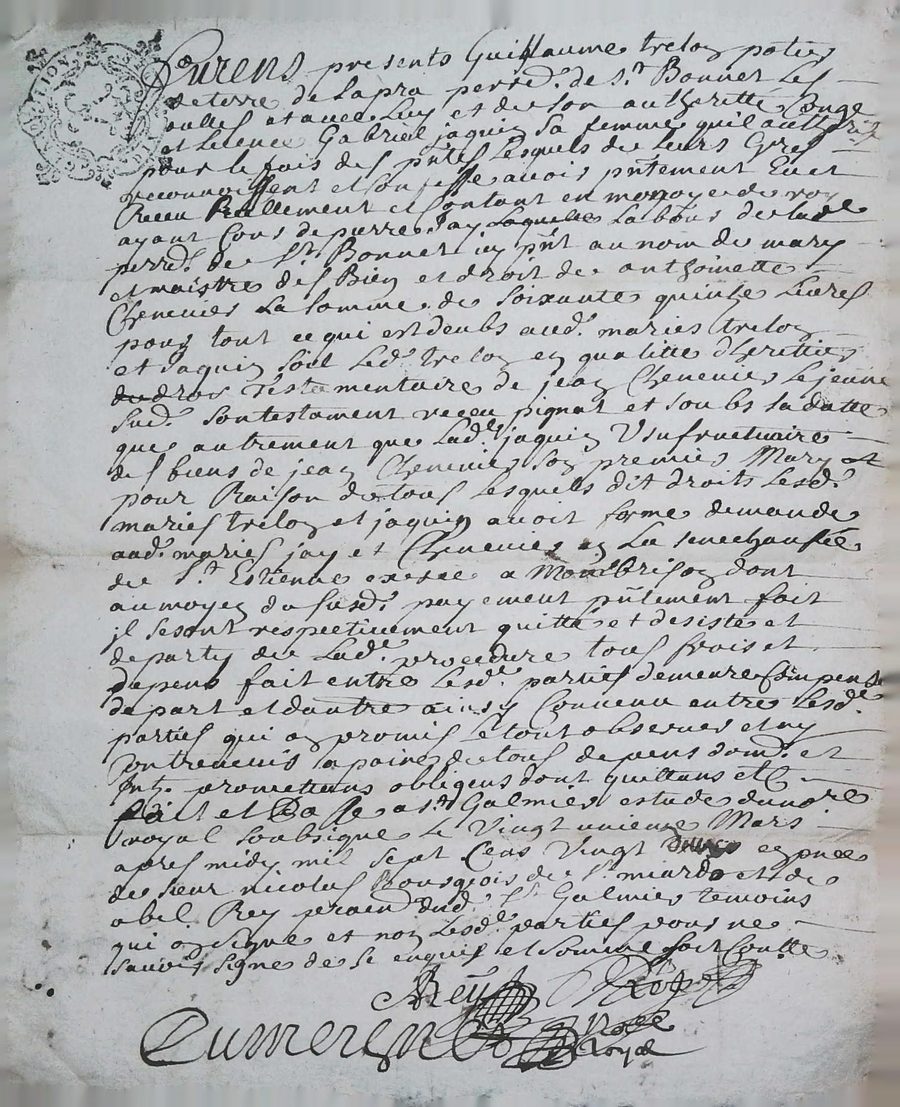 Furens presents Guillaume treloz potier
de terre de Lapra perred. de St. Bonnet Les
oulles et avec Luy et de son authoritté Conge
et Licence Gabriel jaquin sa femme quil authorize
pour le fais des pntes Lesquels de Leurs Gres
reconnoissent et Confesse avois pntement Eu et
Receu Reallement et Contant en monoye de roy
ayant Cours de pierre jay Labous de lad.
perred. de St. Bonnet icy pnt au nom de mary
et maistre des Bien et droit de anthoinette
Chenevies La somme de soixante quinze Livres
pour tout ce qui est deubs aud. maries treloz
et jaquin soit Led. treloz en qualitte dheritties
testamentaire de jean Chenevies Le jeune
sud. son testament receu pignat et soubs sa datte
que autrement que Lad. jaquin Usufructuaire
des biens de jean Chenevies son premies Mary et
pour Raison de tous Lesquels dit droits Lesd.
maries treloz et jaquin avoit forme demande
aud. maries jay et Chenevies en La senechaussée
de St. Estienne exercée a Montbrison dont
au moyen du susd. payement pntement fait
il se sont respectivement quitté et desisté et
departy de Lad. procedure tous frais et
depens fait entre Lesd. parties demeure Compensé
de part et dautre ainsy Convenu entre Lesd.
parties qui on promis le tout observer et ny
Contrevenir a paine de tous depens dom. et
Int. promettans obligens dont quittans etc
Fait et Passe a St. Galmier estude du nore
royal soubsigne le vingt unieme Mars
apres midy mil sept Cens vingt en pnce
de sieur nicolas Bourgeois de St. miard et de
abel Rey dud. St. Galmier temoins
qui on signe et non Lesd. parties pour ne
savoir signe de ce enquis et somme soit Contte
Rey
Dumeren
Nore
Royal